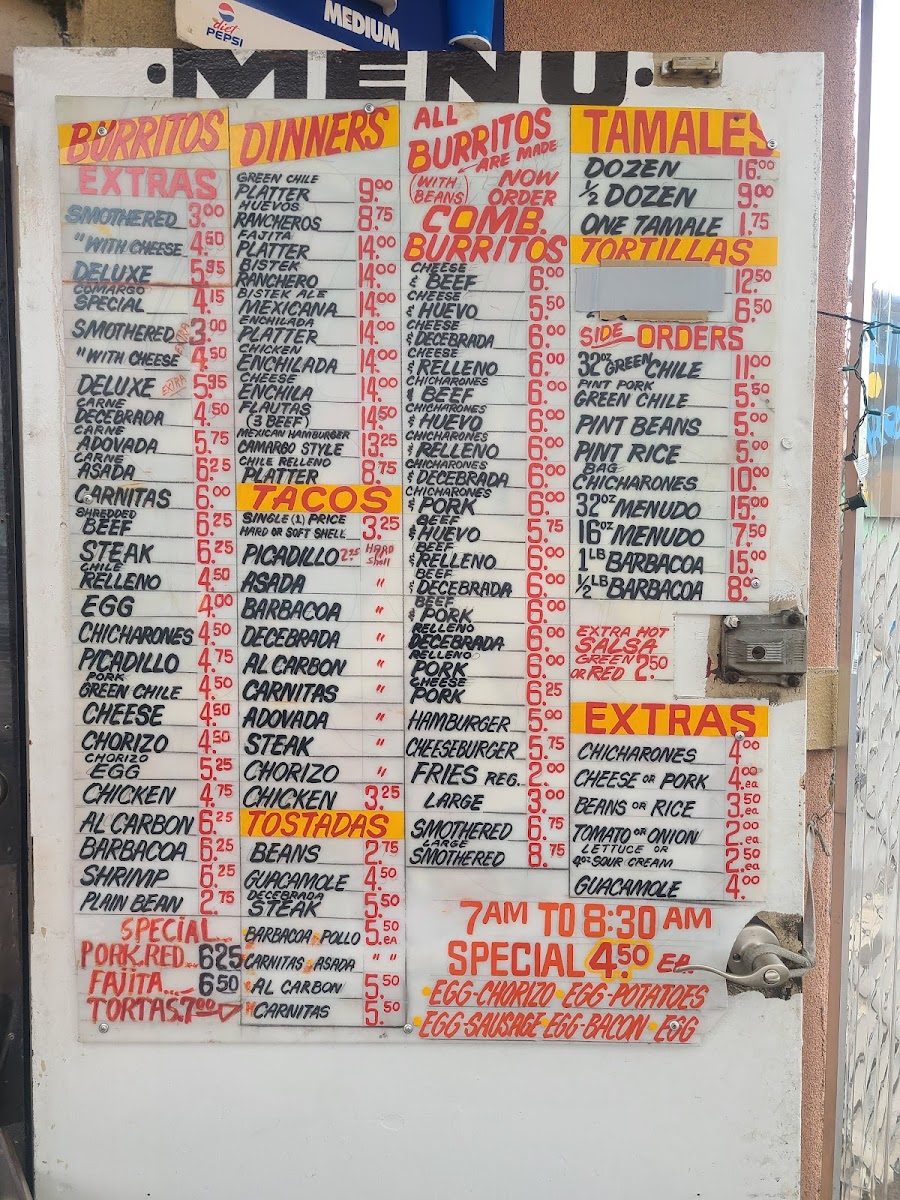 diet
PEPSI
MEDIUM
·MENU·
BURRITOS
EXTRAS
SMOTHERED 3.00
" WITH CHEESE 4.50
DELUXE 5.95
COMARGO
SPECIAL 4.15
SMOTHERED EXTRA 3.00
" WITH CHEESE 4.50
DELUXE EXTRA 5.95
CARNE
DECEBRADA 4.50
CARNE
ADOVADA 5.75
CARNE
ASADA 6.25
CARNITAS 6.00
SHREDDED
BEEF 6.25
STEAK 6.25
CHILE
RELLENO 4.50
EGG 4.00
CHICHARONES 4.50
PICADILLO 4.75
PORK
GREEN CHILE 4.50
CHEESE 4.50
CHORIZO 4.50
CHORIZO
EGG 5.25
CHICKEN 4.75
AL CARBON 6.25
BARBACOA 6.25
SHRIMP 6.25
PLAIN BEAN 2.75
SPECIAL...
PORK.RED... 6.25
FAJITA.... 6.50
TORTAS. 7.00
DINNERS
GREEN CHILE
PLATTER 9.00
HUEVOS
RANCHEROS 8.75
FAJITA
PLATTER 14.00
BISTEK
RANCHERO 14.00
BISTEK ALE
MEXICANA 14.00
ENCHILADA
PLATTER 14.00
CHICKEN
ENCHILADA 14.00
CHEESE
ENCHILA 14.00
FLAUTAS
(3 BEEF) 14.50
MEXICAN HAMBURGER
CAMARGO STYLE 13.25
CHILE RELLENO
PLATTER 8.75
TACOS
SINGLE (1) PRICE
HARD OR SOFT SHELL 3.25
PICADILLO 2.25 HARD Shell
ASADA "
BARBACOA "
DECEBRADA "
AL CARBON "
CARNITAS "
ADOVADA "
STEAK "
CHORIZO "
CHICKEN 3.25
TOSTADAS
BEANS 2.75
GUACAMOLE 4.50
DECEBRADA
STEAK 5.50
BARBACOA · POLLO 5.50 ea
CARNITAS · ASADA " "
AL CARBON 5.50
" CARNITAS 5.50
ALL
BURRITOS
ARE MADE
(WITH BEANS) NOW ORDER
COMB.
BURRITOS
CHEESE
& BEEF 6.00
CHEESE
& HUEVO 5.50
CHEESE
& DECEBRADA 6.00
CHEESE
& RELLENO 6.00
CHICHARONES
& BEEF 6.00
CHICHARONES
& HUEVO 6.00
CHICHARONES
& RELLENO 6.00
CHICHARONES
& DECEBRADA 6.00
CHICHARONES
& PORK 6.00
BEEF
& HUEVO 5.75
BEEF
& RELLENO 6.00
BEEF
& DECEBRADA 6.00
BEEF
& PORK 6.00
RELLENO
DECEBRADA 6.00
RELLENO
PORK 6.00
CHEESE
PORK 6.25
HAMBURGER 5.00
CHEESEBURGER 5.75
FRIES REG. 2.00
LARGE 3.00
SMOTHERED 6.75
LARGE
SMOTHERED 8.75
TAMALES
DOZEN 16.00
1/2 DOZEN 9.00
ONE TAMALE 1.75
TORTILLAS
12.50
6.50
SIDE ORDERS
32oz GREEN CHILE 11.00
PINT PORK
GREEN CHILE 5.50
PINT BEANS 5.00
PINT RICE 5.00
BAG
CHICHARONES 10.00
32oz MENUDO 15.00
16oz MENUDO 7.50
1LB BARBACOA 15.00
1/2LB BARBACOA 8.00
EXTRA HOT
SALSA
GREEN
OR RED 2.50
EXTRAS
CHICHARONES 4.00
CHEESE OR PORK 4.00 ea
BEANS OR RICE 3.50 ea
TOMATO OR ONION 2.00 ea
LETTUCE OR
4oz SOUR CREAM 2.50 ea
GUACAMOLE 4.00
7AM TO 8:30 AM
SPECIAL 4.50 EA.
· EGG-CHORIZO · EGG-POTATOES
· EGG-SAUSAGE · EGG-BACON · EGG